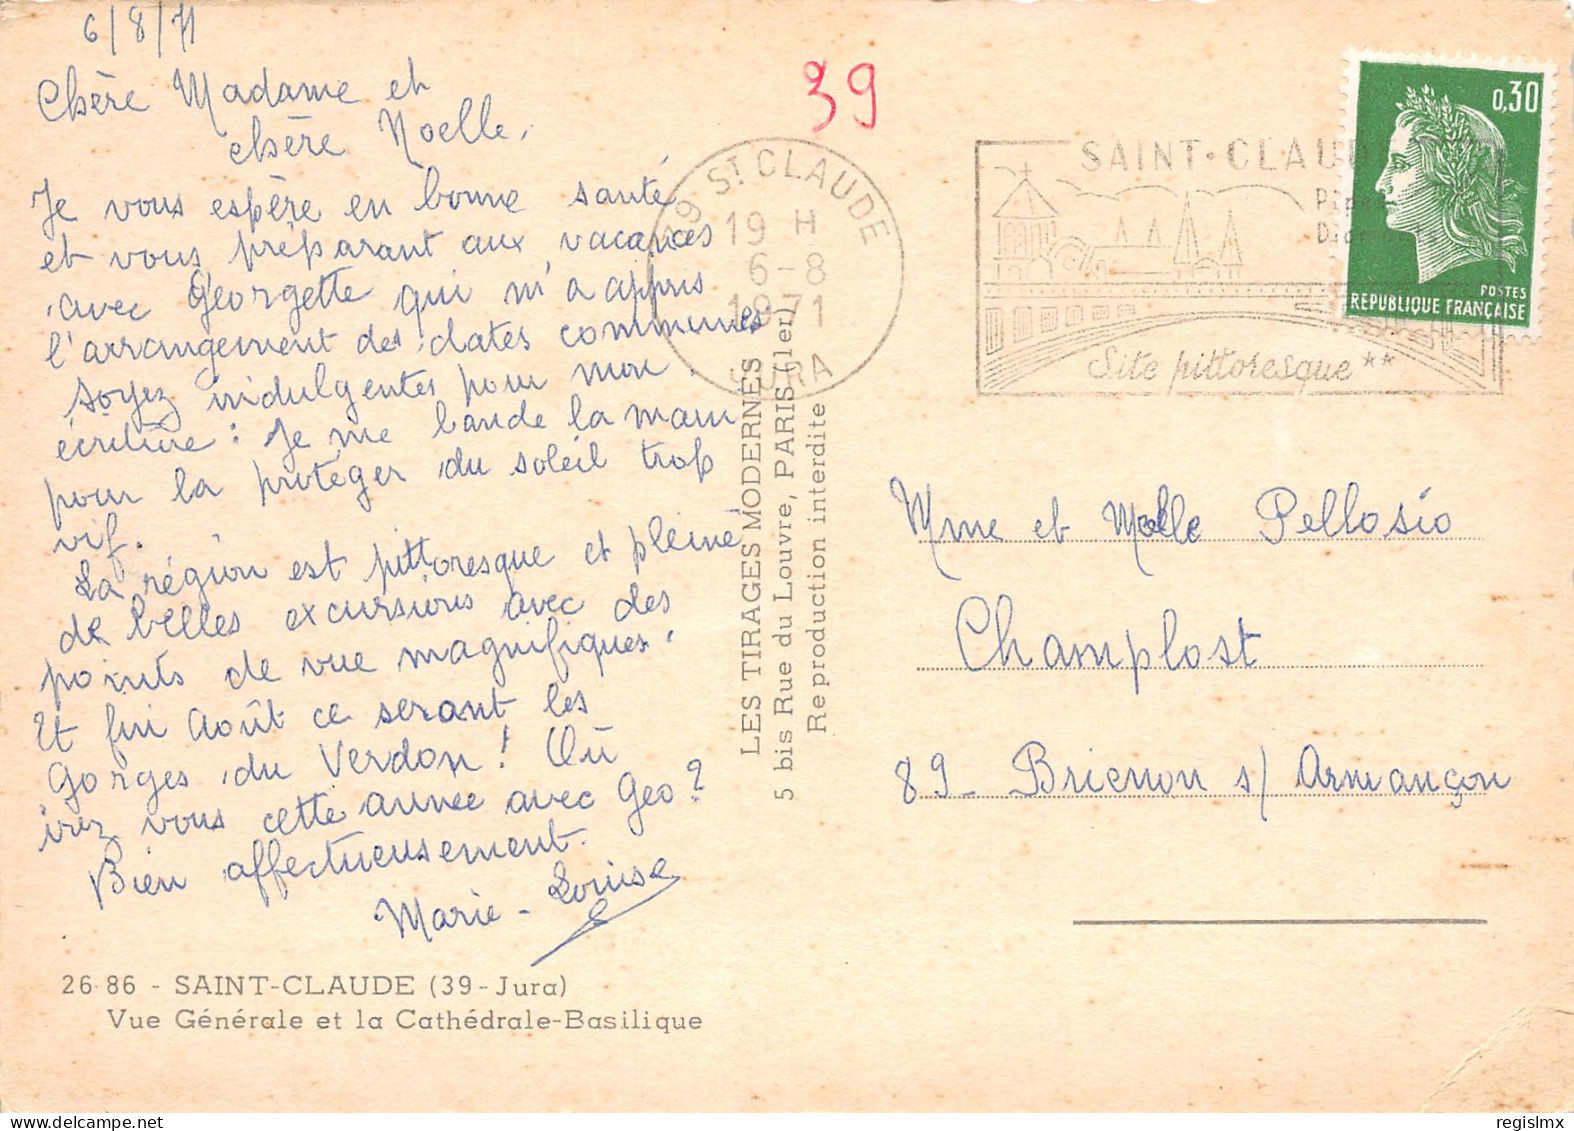 6/8/71
Chère Madame et
chère Noelle,
Je vous espère en bonne santé
et vous préparant aux vacances
avec Georgette qui m'a appris
l'arrangement des dates communes
soyez indulgentes pour mon
écriture : Je me bande la main
pour la protéger du soleil trop
vif.
La région est pittoresque et pleine
de belles excursions avec des
points de vue magnifiques.
Et fin Août ce serant les
Gorges du Verdon ! Où
irez vous cette année avec Geo ?
Bien affectueusement.
Marie-Louise
26-86 - SAINT-CLAUDE (39-Jura)
Vue Générale et la Cathédrale-Basilique
39
39 ST CLAUDE
19 H
6-8
1971
JURA
LES TIRAGES MODERNES
5 bis Rue du Louvre, PARIS (1er)
Reproduction interdite
SAINT-CLAUDE
Site pittoresque **
0,30
POSTES
REPUBLIQUE FRANÇAISE
Mme et Melle Pellosio
Champlost
89_ Brienon s/ Armançon
regislmx